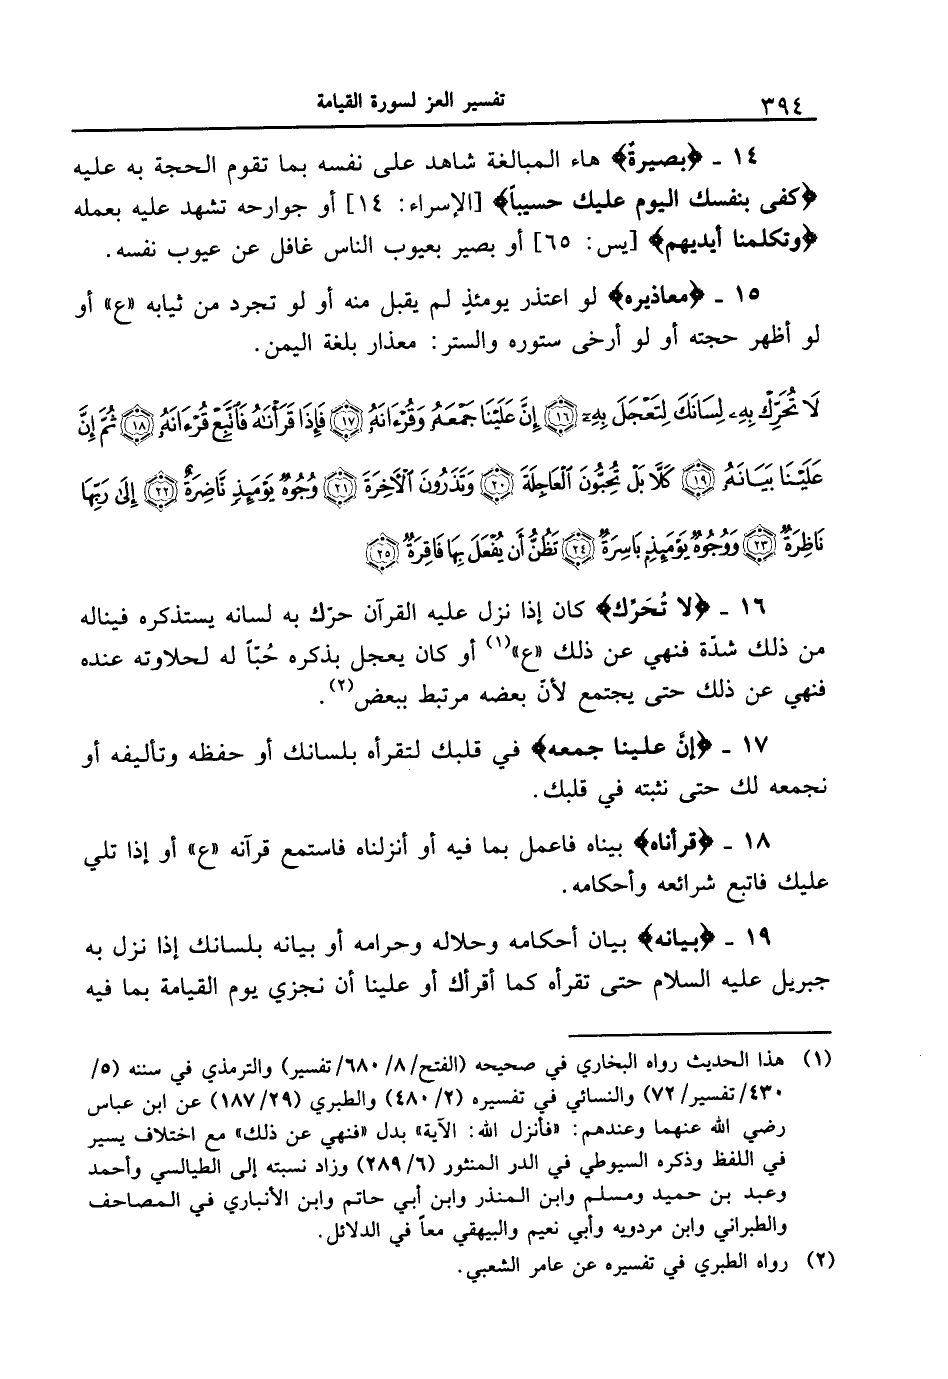 ٣٩٤
تفسير العز لسورة القيامة
١٤ ـ ﴿بصيرةٌ﴾ هاء المبالغة شاهد على نفسه بما تقوم الحجة به عليه
﴿كفى بنفسك اليوم عليك حسيباً﴾ [الإسراء: ١٤] أو جوارحه تشهد عليه بعمله
﴿وتكلمنا أيديهم﴾ [يس: ٦٥] أو بصير بعيوب الناس غافل عن عيوب نفسه.
١٥ ـ ﴿معاذيره﴾ لو اعتذر يومئذٍ لم يقبل منه أو لو تجرد من ثيابه «ع» أو
لو أظهر حجته أو لو أرخى ستوره والستر: معذار بلغة اليمن.
لَا تُحَرِّكْ بِهِۦ لِسَانَكَ لِتَعْجَلَ بِهِۦٓ ﴿١٦﴾ إِنَّ عَلَيْنَا جَمْعَهُۥ وَقُرْءَانَهُۥ ﴿١٧﴾ فَإِذَا قَرَأْنَٰهُ فَٱتَّبِعْ قُرْءَانَهُۥ ﴿١٨﴾ ثُمَّ إِنَّ
عَلَيْنَا بَيَانَهُۥ ﴿١٩﴾ كَلَّا بَلْ تُحِبُّونَ ٱلْعَاجِلَةَ ﴿٢٠﴾ وَتَذَرُونَ ٱلْآخِرَةَ ﴿٢١﴾ وُجُوهٌ يَوْمَئِذٍ نَّاضِرَةٌ ﴿٢٢﴾ إِلَىٰ رَبِّهَا
نَاظِرَةٌ ﴿٢٣﴾ وَوُجُوهٌ يَوْمَئِذٍۭ بَاسِرَةٌ ﴿٢٤﴾ تَظُنُّ أَن يُفْعَلَ بِهَا فَاقِرَةٌ ﴿٢٥﴾
١٦ ـ ﴿لا تُحَرِّك﴾ كان إذا نزل عليه القرآن حرّك به لسانه يستذكره فيناله
من ذلك شدّة فنهي عن ذلك «ع»(١) أو كان يعجل بذكره حُبّاً له لحلاوته عنده
فنهي عن ذلك حتى يجتمع لأنّ بعضه مرتبط ببعض(٢).
١٧ ـ ﴿إنَّ علينا جمعه﴾ في قلبك لتقرأه بلسانك أو حفظه وتأليفه أو
نجمعه لك حتى نثبته في قلبك.
١٨ ـ ﴿قرأناه﴾ بيناه فاعمل بما فيه أو أنزلناه فاستمع قرآنه «ع» أو إذا تلي
عليك فاتبع شرائعه وأحكامه.
١٩ ـ ﴿بيانه﴾ بيان أحكامه وحلاله وحرامه أو بيانه بلسانك إذا نزل به
جبريل عليه السلام حتى تقرأه كما أقرأك أو علينا أن نجزي يوم القيامة بما فيه
(١) هذا الحديث رواه البخاري في صحيحه (الفتح/٨/٦٨٠/تفسير) والترمذي في سننه (٥/
٤٣٠/تفسير/٧٢) والنسائي في تفسيره (٤٨٠/٢) والطبري (١٨٧/٢٩) عن ابن عباس
رضي الله عنهما وعندهم: «فأنزل الله: الآية» بدل «فنهي عن ذلك» مع اختلاف يسير
في اللفظ وذكره السيوطي في الدر المنثور (٢٨٩/٦) وزاد نسبته إلى الطيالسي وأحمد
وعبد بن حميد ومسلم وابن المنذر وابن أبي حاتم وابن الأنباري في المصاحف
والطبراني وابن مردويه وأبي نعيم والبيهقي معاً في الدلائل.
(٢) رواه الطبري في تفسيره عن عامر الشعبي.